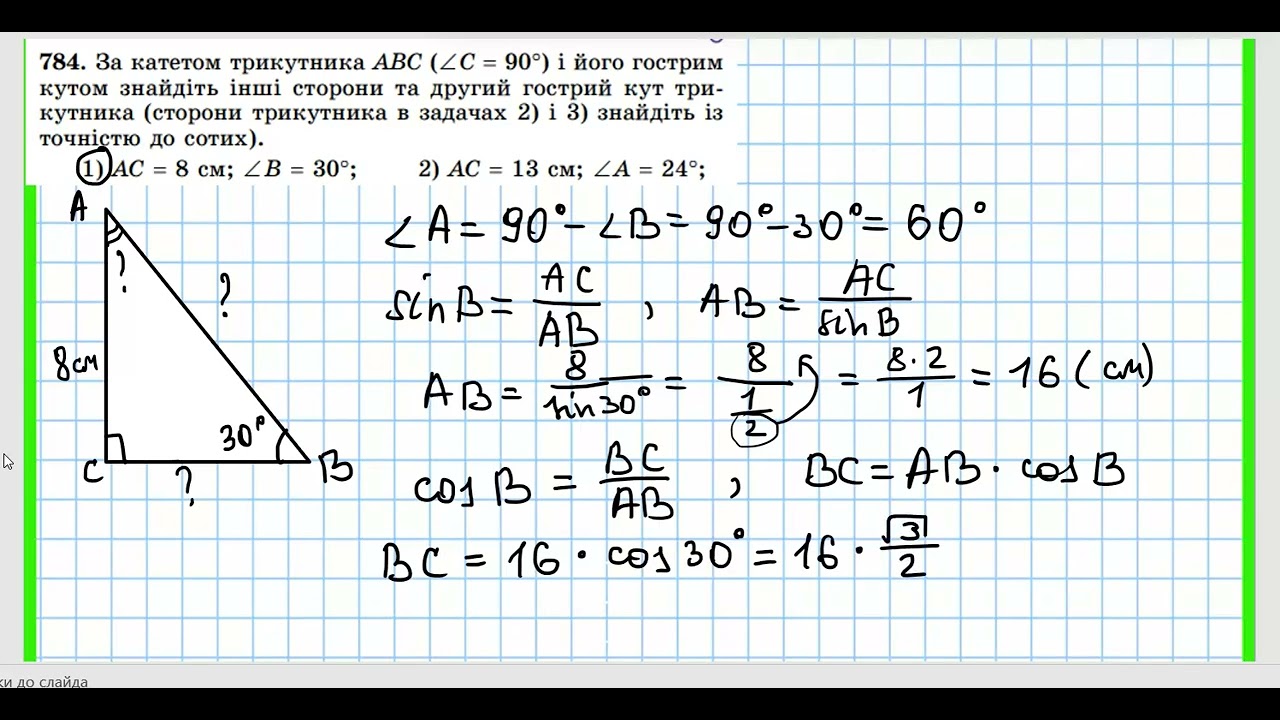 784. За катетом трикутника ABC (∠C = 90°) і його гострим
кутом знайдіть інші сторони та другий гострий кут три-
кутника (сторони трикутника в задачах 2) і 3) знайдіть із
точністю до сотих).
1) AC = 8 см; ∠B = 30°; 2) AC = 13 см; ∠A = 24°;
A
?
?
8см
30°
C
?
B
∠A = 90° − ∠B = 90° − 30° = 60°
sinB = AC/AB , AB = AC/sinB
AB = 8/sin30° = 8/(1/2) = 8·2/1 = 16 (см)
cosB = BC/AB , BC = AB · cosB
BC = 16 · cos30° = 16 · √3/2
ки до слайда